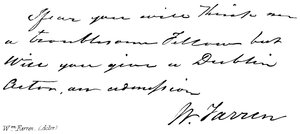 I fear you will think me
a troublesome Fellow but
Will you give a Dublin
Actor, an admission
W. Farren
Wm Farren. (Actor)